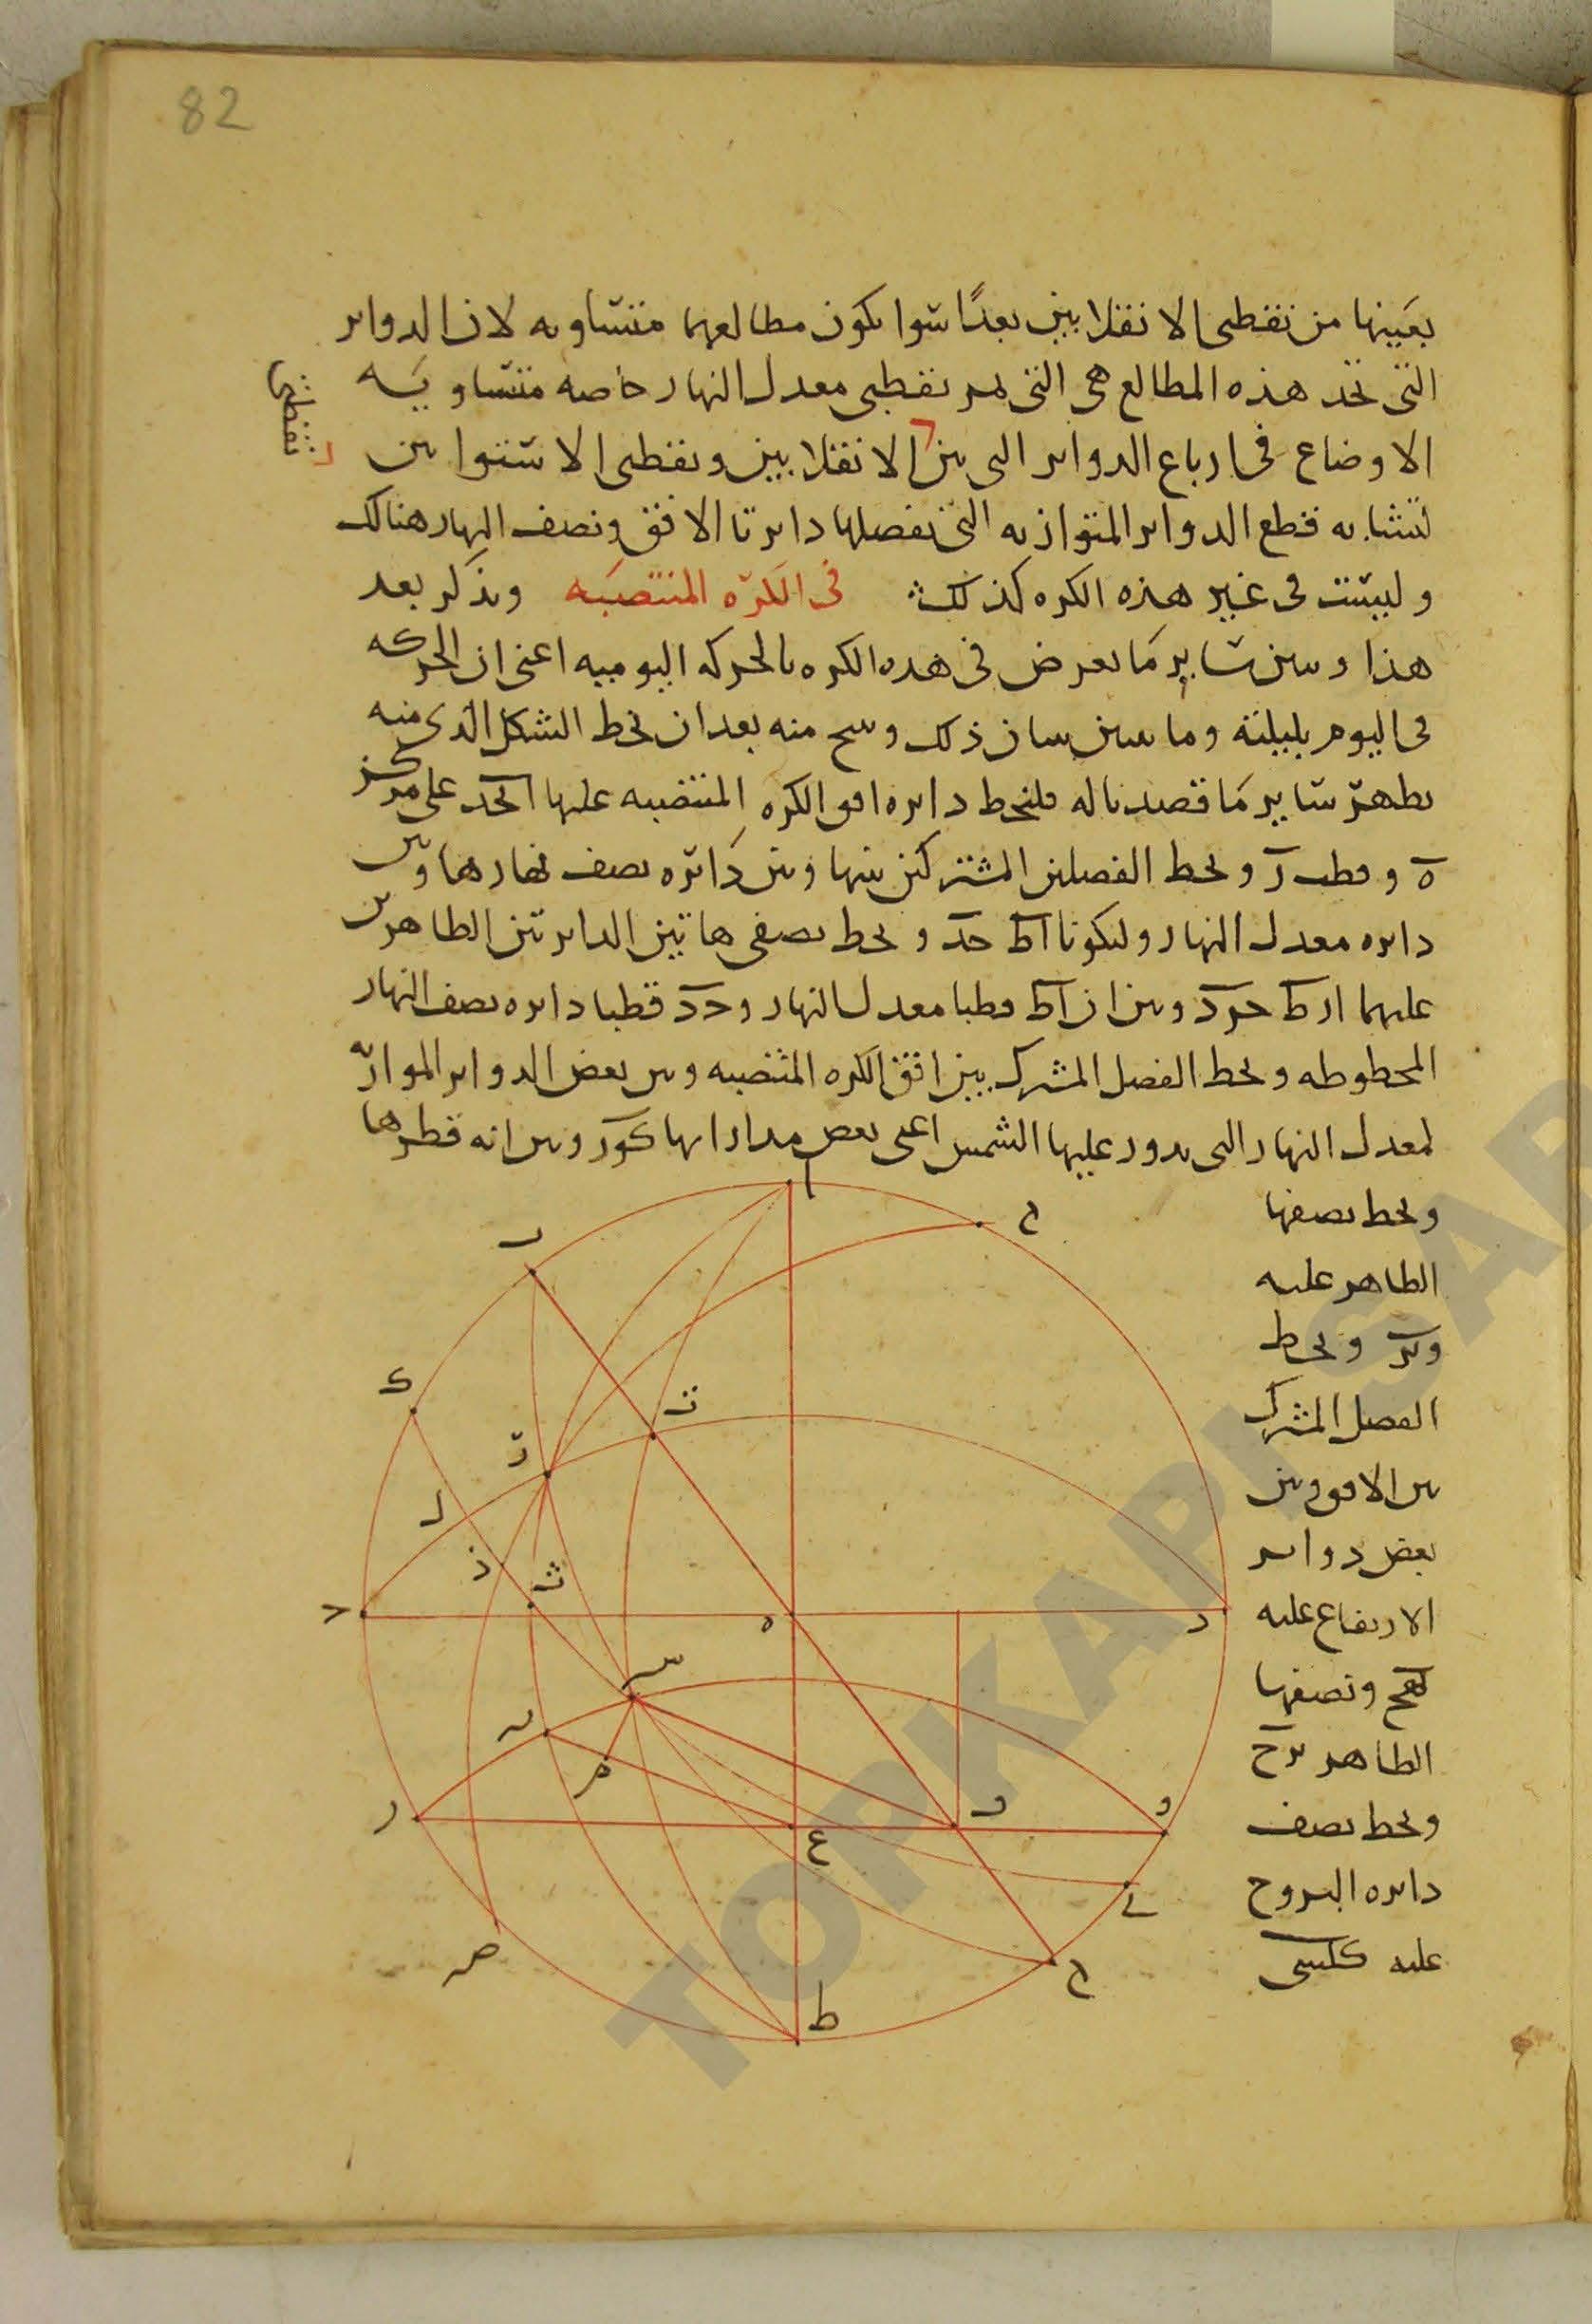 82
بعينها من نقطى الانقلابين بعدًا سوا تكون مطالعهما متساويه لان الدواير
التى تحد هذه المطالع هى التى تمر بقطبى معدل النهار خاصه متساويه
نقطتى
الاوضاع فى ارباع الدواير التى بين الانقلابين ونقطى الاستوا بين
لتشابه قطع الدواير المتوازيه التى تفصلها دايرتا الافق ونصف النهار هنالك
وليست فى غير هذه الكره كذلك فى الكره المنتصبه ونذكر بعد
هذا ونبين ساير ما يعرض فى هذه الكره بالحركه اليوميه اعنى ان الحركه
فى اليوم بليلته وما نبين بيان ذلك منه بعد ان نخط الشكل الذى منه
يظهر ساير ما قصدنا له فلنخط دايره افق الكره المنتصبه عليها ا ح د على مركز
ه وقطب ر ونخط الفصلين المشتركين بينها وبين دايره نصف نهارها وبين
دايره معدل النهار وليكونا اط حد ونخط نصفى هاتين الدايرتين الظاهرين
عليهما ارط حرد وبين ان اط قطبا معدل النهار وحد قطبا دايره نصف النهار
المخطوطه ونخط الفصل المشترك بين افق الكره المنتصبه وبين بعض الدواير الموازيه
لمعدل النهار التى يدور عليها الشمس اعنى بعض مداراتها وبين انه قطرها
ونخط نصفها
الظاهر عليه
ونخط
الفصل المشترك
بين الافق وبين
بعض دواير
الارتفاع عليه
ونصفها
الظاهر
ونخط نصف
دايره البروج
عليه
ا
ح
ب
ك
ت
ز
ل
ذ
ث
ح
ه
د
س
ن
م
ر
ع
ف
و
ى
ص
ط
ح
TOPKAPI SAR